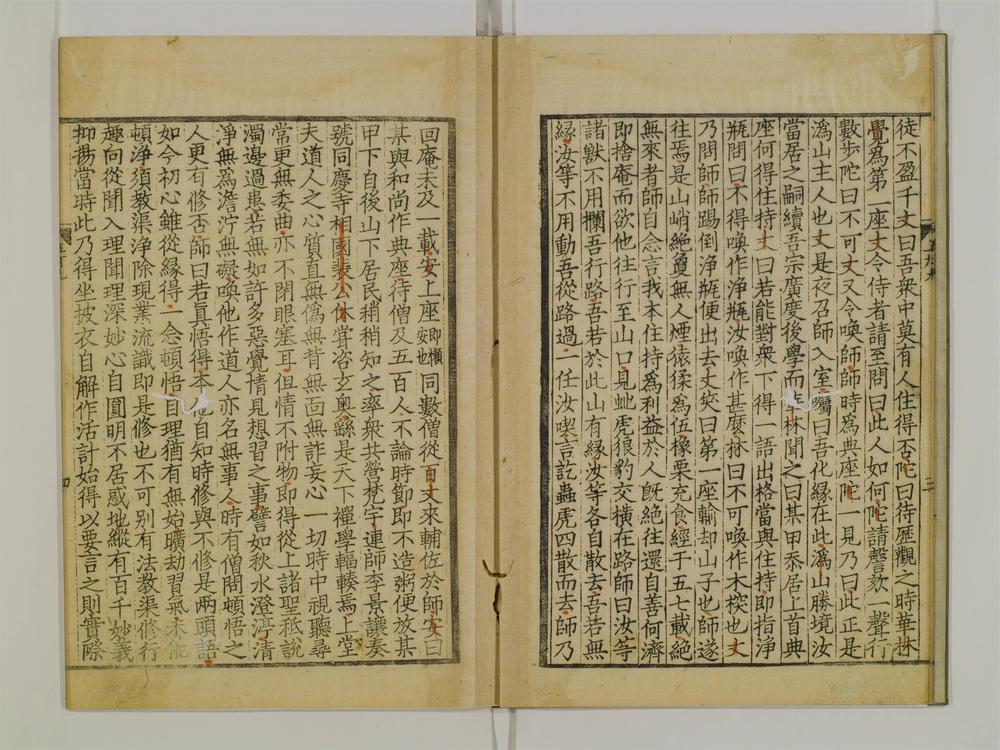 徒不盈千丈曰吾衆中莫有人住得否陀曰待歷觀之時華林
覺爲第一座丈令侍者請至問曰此人如何陀請謦欬一聲行
數步陀曰不可丈又令喚師師時爲典座陀一見乃曰此正是
潙山主人也丈是夜召師入室囑曰吾化縁在此潙山勝境汝
當居之嗣續吾宗廣度後學而華林聞之曰某甲忝居上首典
座何得住持丈曰若能對衆下得一語出格當與住持即指淨
瓶問曰不得喚作淨瓶汝喚作甚麼林曰不可喚作木𣔻也丈
乃問師師踢倒淨瓶便出去丈笑曰第一座輸却山子也師遂
往焉是山峭絶敻無人煙猿猱爲伍橡栗充食經于五七載絶
無來者師自念言我本住持爲利益於人旣絶往還自善何濟
即捨庵而欲他往行至山口見虵虎狼豹交橫在路師曰汝等
諸獸不用攔吾行路吾若於此山有縁汝等各自散去吾若無
縁汝等不用動吾從路過一任汝喫言訖蟲虎四散而去師乃
回庵未及一載安上座即懶安也同數僧從百丈來輔佐於師安曰
某與和尚作典座待僧及五百人不論時節即不造粥便放某
甲下自後山下居民稍稍知之率衆共營梵宇連師李景讓奏
號同慶寺相國裴公休甞咨玄奧繇是天下禪學輻輳焉上堂
夫道人之心質直無僞無背無面無詐妄心一切時中視聽尋
常更無委曲亦不閉眼塞耳但情不附物即得從上諸聖秖說
濁邊過患若無如許多惡覺情見想習之事譬如秋水澄渟清
淨無爲澹泞無礙喚他作道人亦名無事人時有僧問頓悟之
人更有修否師曰若眞悟得本他自知時修與不修是兩頭語
如今初心雖從縁得一念頓悟自理猶有無始曠劫習氣未能
頓淨須教渠淨除現業流識即是修也不可別有法教渠修行
趣向從聞入理聞理深妙心自圓明不居惑地縱有百千妙義
抑揚當時此乃得坐披衣自解作活計始得以要言之則實際